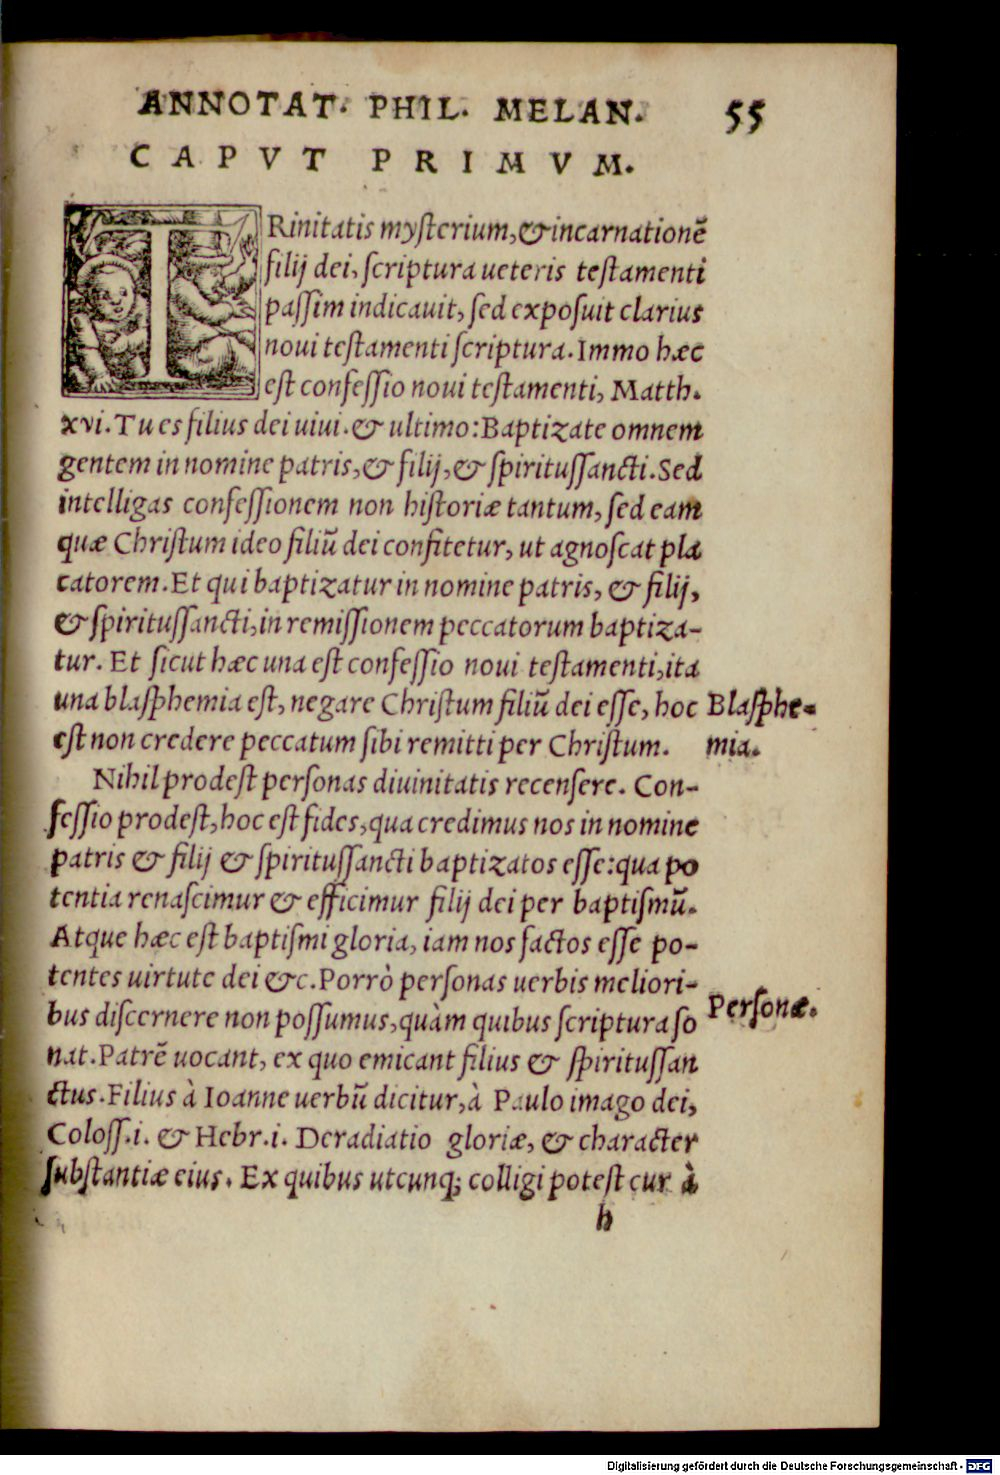 ANNOTAT. PHIL. MELAN. 55
CAPVT PRIMVM.
TRinitatis mysterium, & incarnationẽ
filij dei, scriptura ueteris testamenti
passim indicauit, sed exposuit clarius
noui testamenti scriptura. Immo hæc
est confessio noui testamenti, Matth.
xvi. Tu es filius dei uiui. & ultimo: Baptizate omnem
gentem in nomine patris, & filij, & spiritussancti. Sed
intelligas confessionem non historiæ tantum, sed eam
quæ Christum ideo filiũ dei confitetur, ut agnoscat pla
catorem. Et qui baptizatur in nomine patris, & filij,
& spiritussancti, in remissionem peccatorum baptiza-
tur. Et sicut hæc una est confessio noui testamenti, ita
una blasphemia est, negare Christum filiũ dei esse, hoc
est non credere peccatum sibi remitti per Christum.
Blasphe-
mia.
Nihil prodest personas diuinitatis recensere. Con-
fessio prodest, hoc est fides, qua credimus nos in nomine
patris & filij & spiritussancti baptizatos esse: qua po
tentia renascimur & efficimur filij dei per baptismũ.
Atque hæc est baptismi gloria, iam nos factos esse po-
tentes uirtute dei &c. Porrò personas uerbis meliori-
bus discernere non possumus, quàm quibus scriptura so
Personæ.
nat. Patrẽ uocant, ex quo emicant filius & spiritussan
ctus. Filius à Ioanne uerbũ dicitur, à Paulo imago dei,
Coloss. i. & Hebr. i. Deradiatio gloriæ, & character
substantiæ eius. Ex quibus utcunq; colligi potest cur à
h
Digitalisierung gefördert durch die Deutsche Forschungsgemeinschaft - DFG